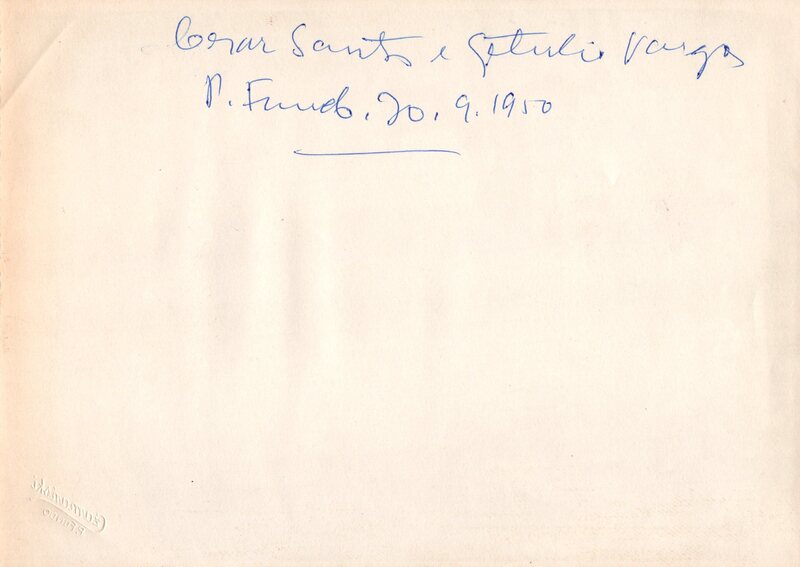 Cesar Santos e Getulio Vargas
P. Fundo. 20. 9. 1950
P. Fundo